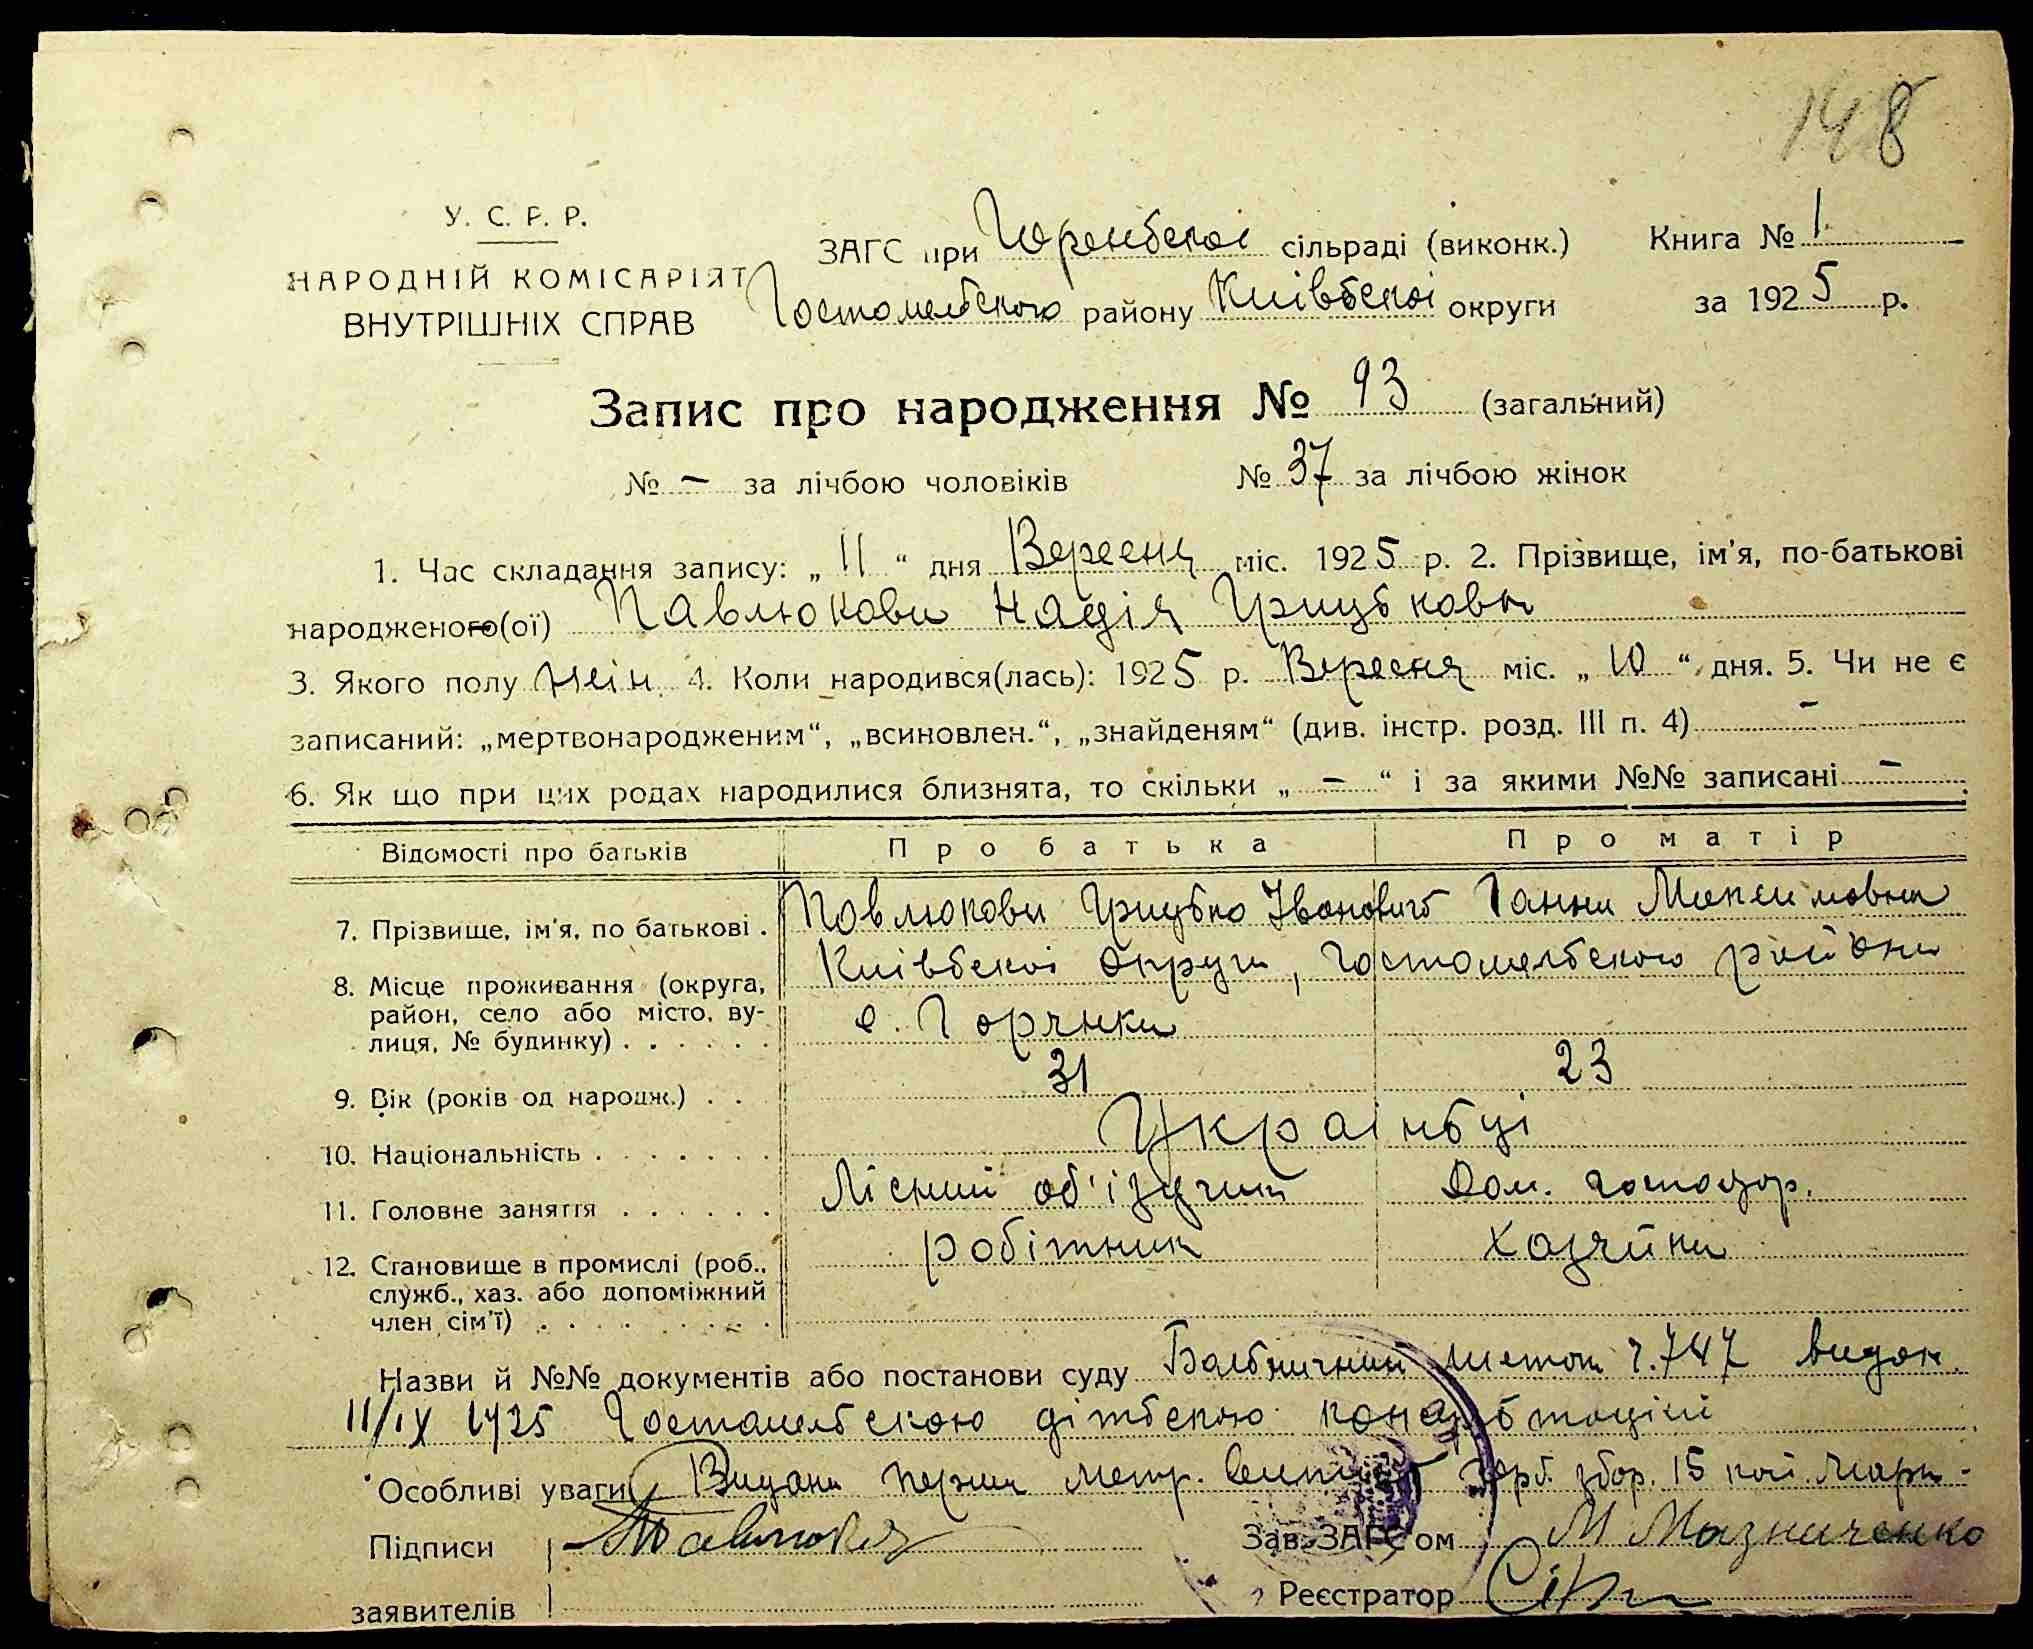 148
У. С. Р. Р.
ЗАГС при Горенської сільраді (виконк.) Книга № 1
НАРОДНІЙ КОМІСАРІЯТ Гостомельського району Київської округи за 1925 р.
ВНУТРІШНІХ СПРАВ
Запис про народження № 93 (загальний)
№ – за лічбою чоловіків № 37 за лічбою жінок
1. Час складання запису: „ 11 “ дня Вересня міс. 1925 р. 2. Прізвище, ім'я, по-батькові
народженого(ої) Павлюкова Надія Грицьковна
3. Якого полу жін. 4. Коли народився(лась): 1925 р. Вересня міс. „ 10 “ дня. 5. Чи не є
записаний: „мертвонародженим“, „всиновлен.“, „знайденям“ (див. інстр. розд. III п. 4) –
6. Як що при цих родах народилися близнята, то скільки „ – “ і за якими №№ записані –
Відомості про батьків Про батька Про матір
7. Прізвище, ім'я, по батькові . Павлюкови Грицько Іванович Ганна Максимовна
8. Місце проживання (округа, Київської округи, Гостомельського району
район, село або місто, ву-
лиця, № будинку) . . . . . . с. Горянка
9. Вік (років од народж.) . . 31 23
10. Національність . . . . . . . Українці
11. Головне заняття . . . . . . Лісний об'їздчик Дом. господар.
12. Становище в промислі (роб., робітник хазяйка
служб., хаз. або допоміжний
член сім'ї) . . . . . . . . .
Назви й №№ документів або постанови суду Больничний листок ч. 747 видан.
11/IX 1925 Гостомельською дітською консультацією
Особливі уваги Видана перша метр. гербл. збор. 15 коп. марк
Підписи Павлюков Зав. ЗАГС'ом М Мазниченко
заявителів Реєстратор